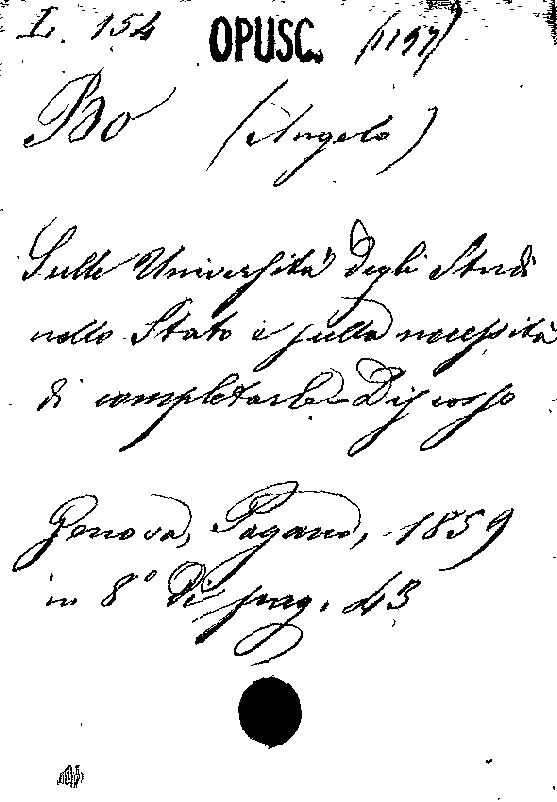 L. 154 OPUSC. (1157)
Bo (Angelo)
Sulle Università degli Studi
nello Stato e sulla necessità
di completarle - Discorso
Genova, Pagano, 1859
in 8° di pag. 43